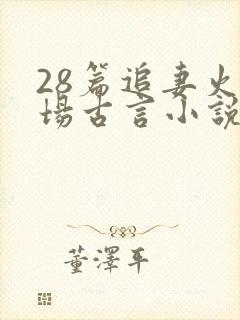 28篇追妻火
場古言小說
董澤平